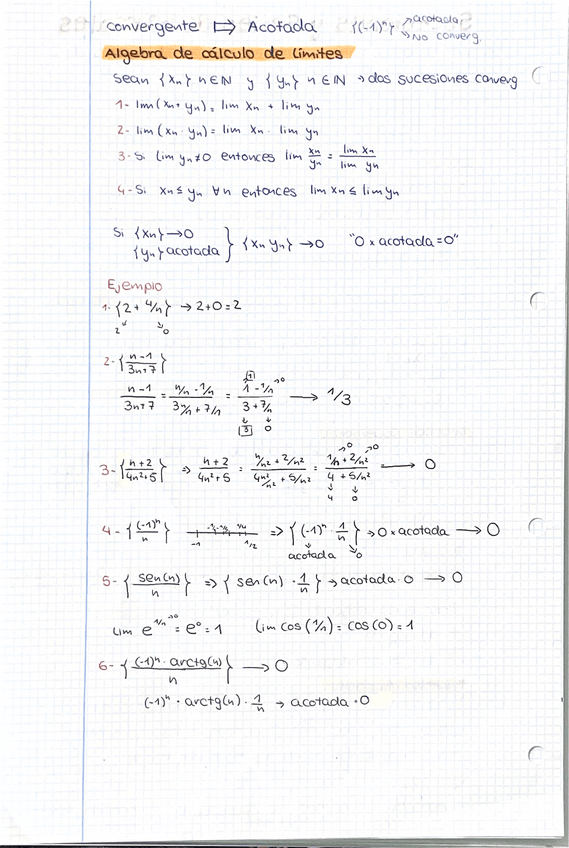 convergente ⇒ Acotada {(-1)ⁿ} → acotada
↘ No converg.
Algebra de cálculo de límites
Sean {xₙ} n∈ℕ y {yₙ} n∈ℕ → dos sucesiones converg
1- lim(xₙ+yₙ) = lim xₙ + lim yₙ
2- lim(xₙ·yₙ) = lim xₙ · lim yₙ
3- Si lim yₙ ≠ 0 entonces lim xₙ/yₙ = lim xₙ / lim yₙ
4- Si xₙ ≤ yₙ ∀n entonces lim xₙ ≤ lim yₙ
Si {xₙ} → 0
{yₙ} acotada } {xₙ yₙ} → 0 "0 x acotada = 0"
Ejempio
1. {2 + 4/n} → 2+0 = 2
2 0
2- {(n-1)/(3n+7)}
(n-1)/(3n+7) = (n/n - 1/n)/(3n/n + 7/n) = (1 - 1/n →0)/(3 + 7/n) → 1/3
1 3 0
3- {(n+2)/(4n²+5)} ⇒ (n+2)/(4n²+5) = (n/n² + 2/n²)/(4n²/n² + 5/n²) = (1/n →0 + 2/n² →0)/(4 + 5/n²) → 0
4 0
4- {(-1)ⁿ/n} -1 1/2 ⇒ {(-1)ⁿ · 1/n} → 0 x acotada → 0
acotada 0
5- {sen(n)/n} ⇒ {sen(n) · 1/n} → acotada · 0 → 0
Lim e^(1/n →0) = e⁰ = 1 Lim cos(1/n) = cos(0) = 1
6- {(-1)ⁿ · arctg(n)/n} → 0
(-1)ⁿ · arctg(n) · 1/n → acotada · 0